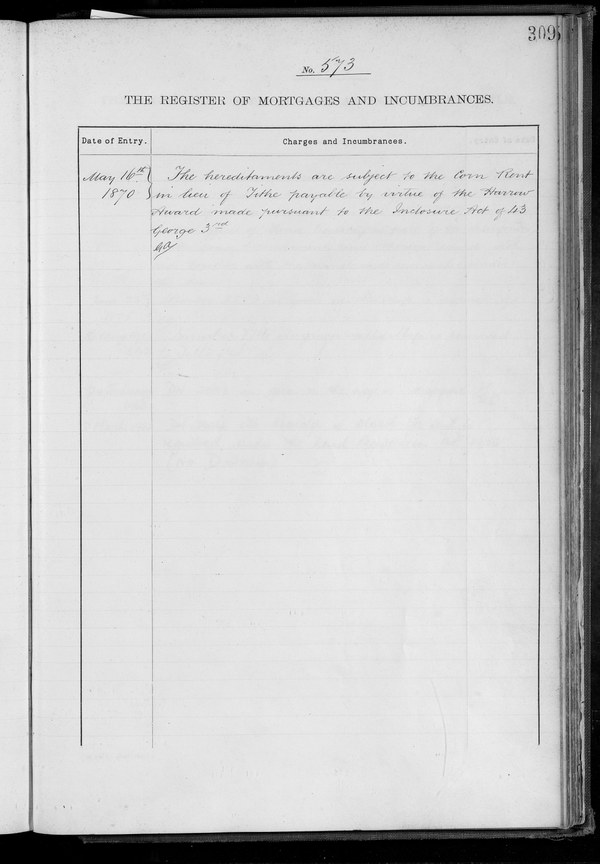 309
No. 573
THE REGISTER OF MORTGAGES AND INCUMBRANCES.
Date of Entry. Charges and Incumbrances.
May 16th The hereditaments are subject to the Corn Rent
1870 in lieu of Tithe payable by virtue of the Harrow
Award made pursuant to the Inclosure Act of 43
George 3rd